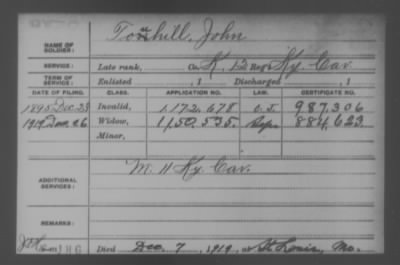 Tomhill, John
NAME OF SOLDIER:
SERVICE: Late rank, Co. K, 12 Reg't Ky. Cav.
TERM OF SERVICE: Enlisted , 1 Discharged , 1
DATE OF FILING. CLASS. APPLICATION NO. LAW. CERTIFICATE NO.
1895 Dec. 23 Invalid, 1,172,678 G.L. 987,306
1919 Dec. 26 Widow, 1,150,535. 884,623
Minor,
ADDITIONAL SERVICES: M. 11 Ky. Cav.
REMARKS:
Died Dec. 7, 1919, at St. Louis, Mo.